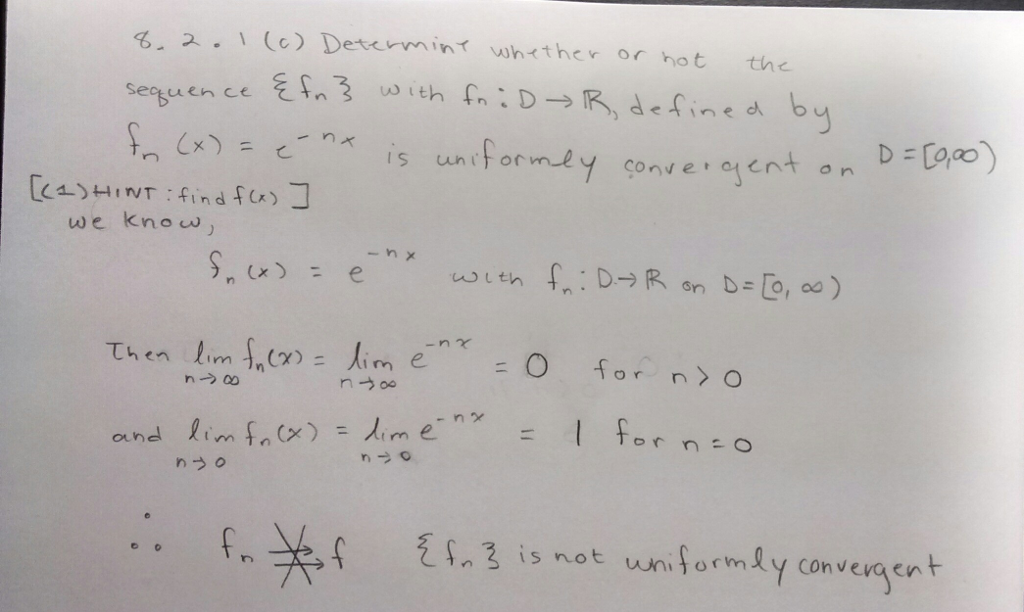 8. 2. 1 (c) Determine whether or not the
sequence {fn} with fn: D → ℝ, defined by
fn (x) = e^-nx is uniformly convergent on D = [0,∞)
[(1) HINT: find f(x) ]
we know,
fn (x) = e^-nx with fn: D → ℝ on D = [0, ∞)
Then lim n→∞ fn(x) = lim n→∞ e^-nx = 0 for n > 0
and lim n→0 fn(x) = lim n→0 e^-nx = 1 for n = 0
∴ fn ⇉̸ f {fn} is not uniformly convergent